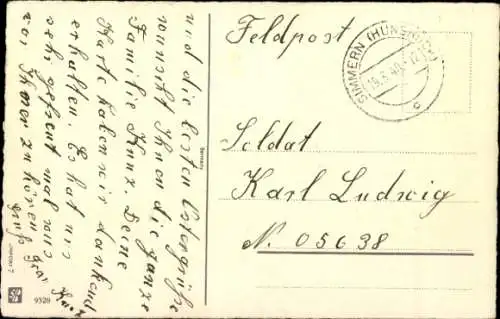 und die besten Ostergrüße
wünscht Ihnen die ganze
Familie Kunz. Deine
Karte haben wir dankend
erhalten. Es hat uns
sehr gefreut mal was
von Ihnen zu hören
Gruß Frau
Kunz
Feldpost
SIMMERN (HUNSRÜCK)
Soldat
Karl Ludwig
N. 05638
Germany
9320